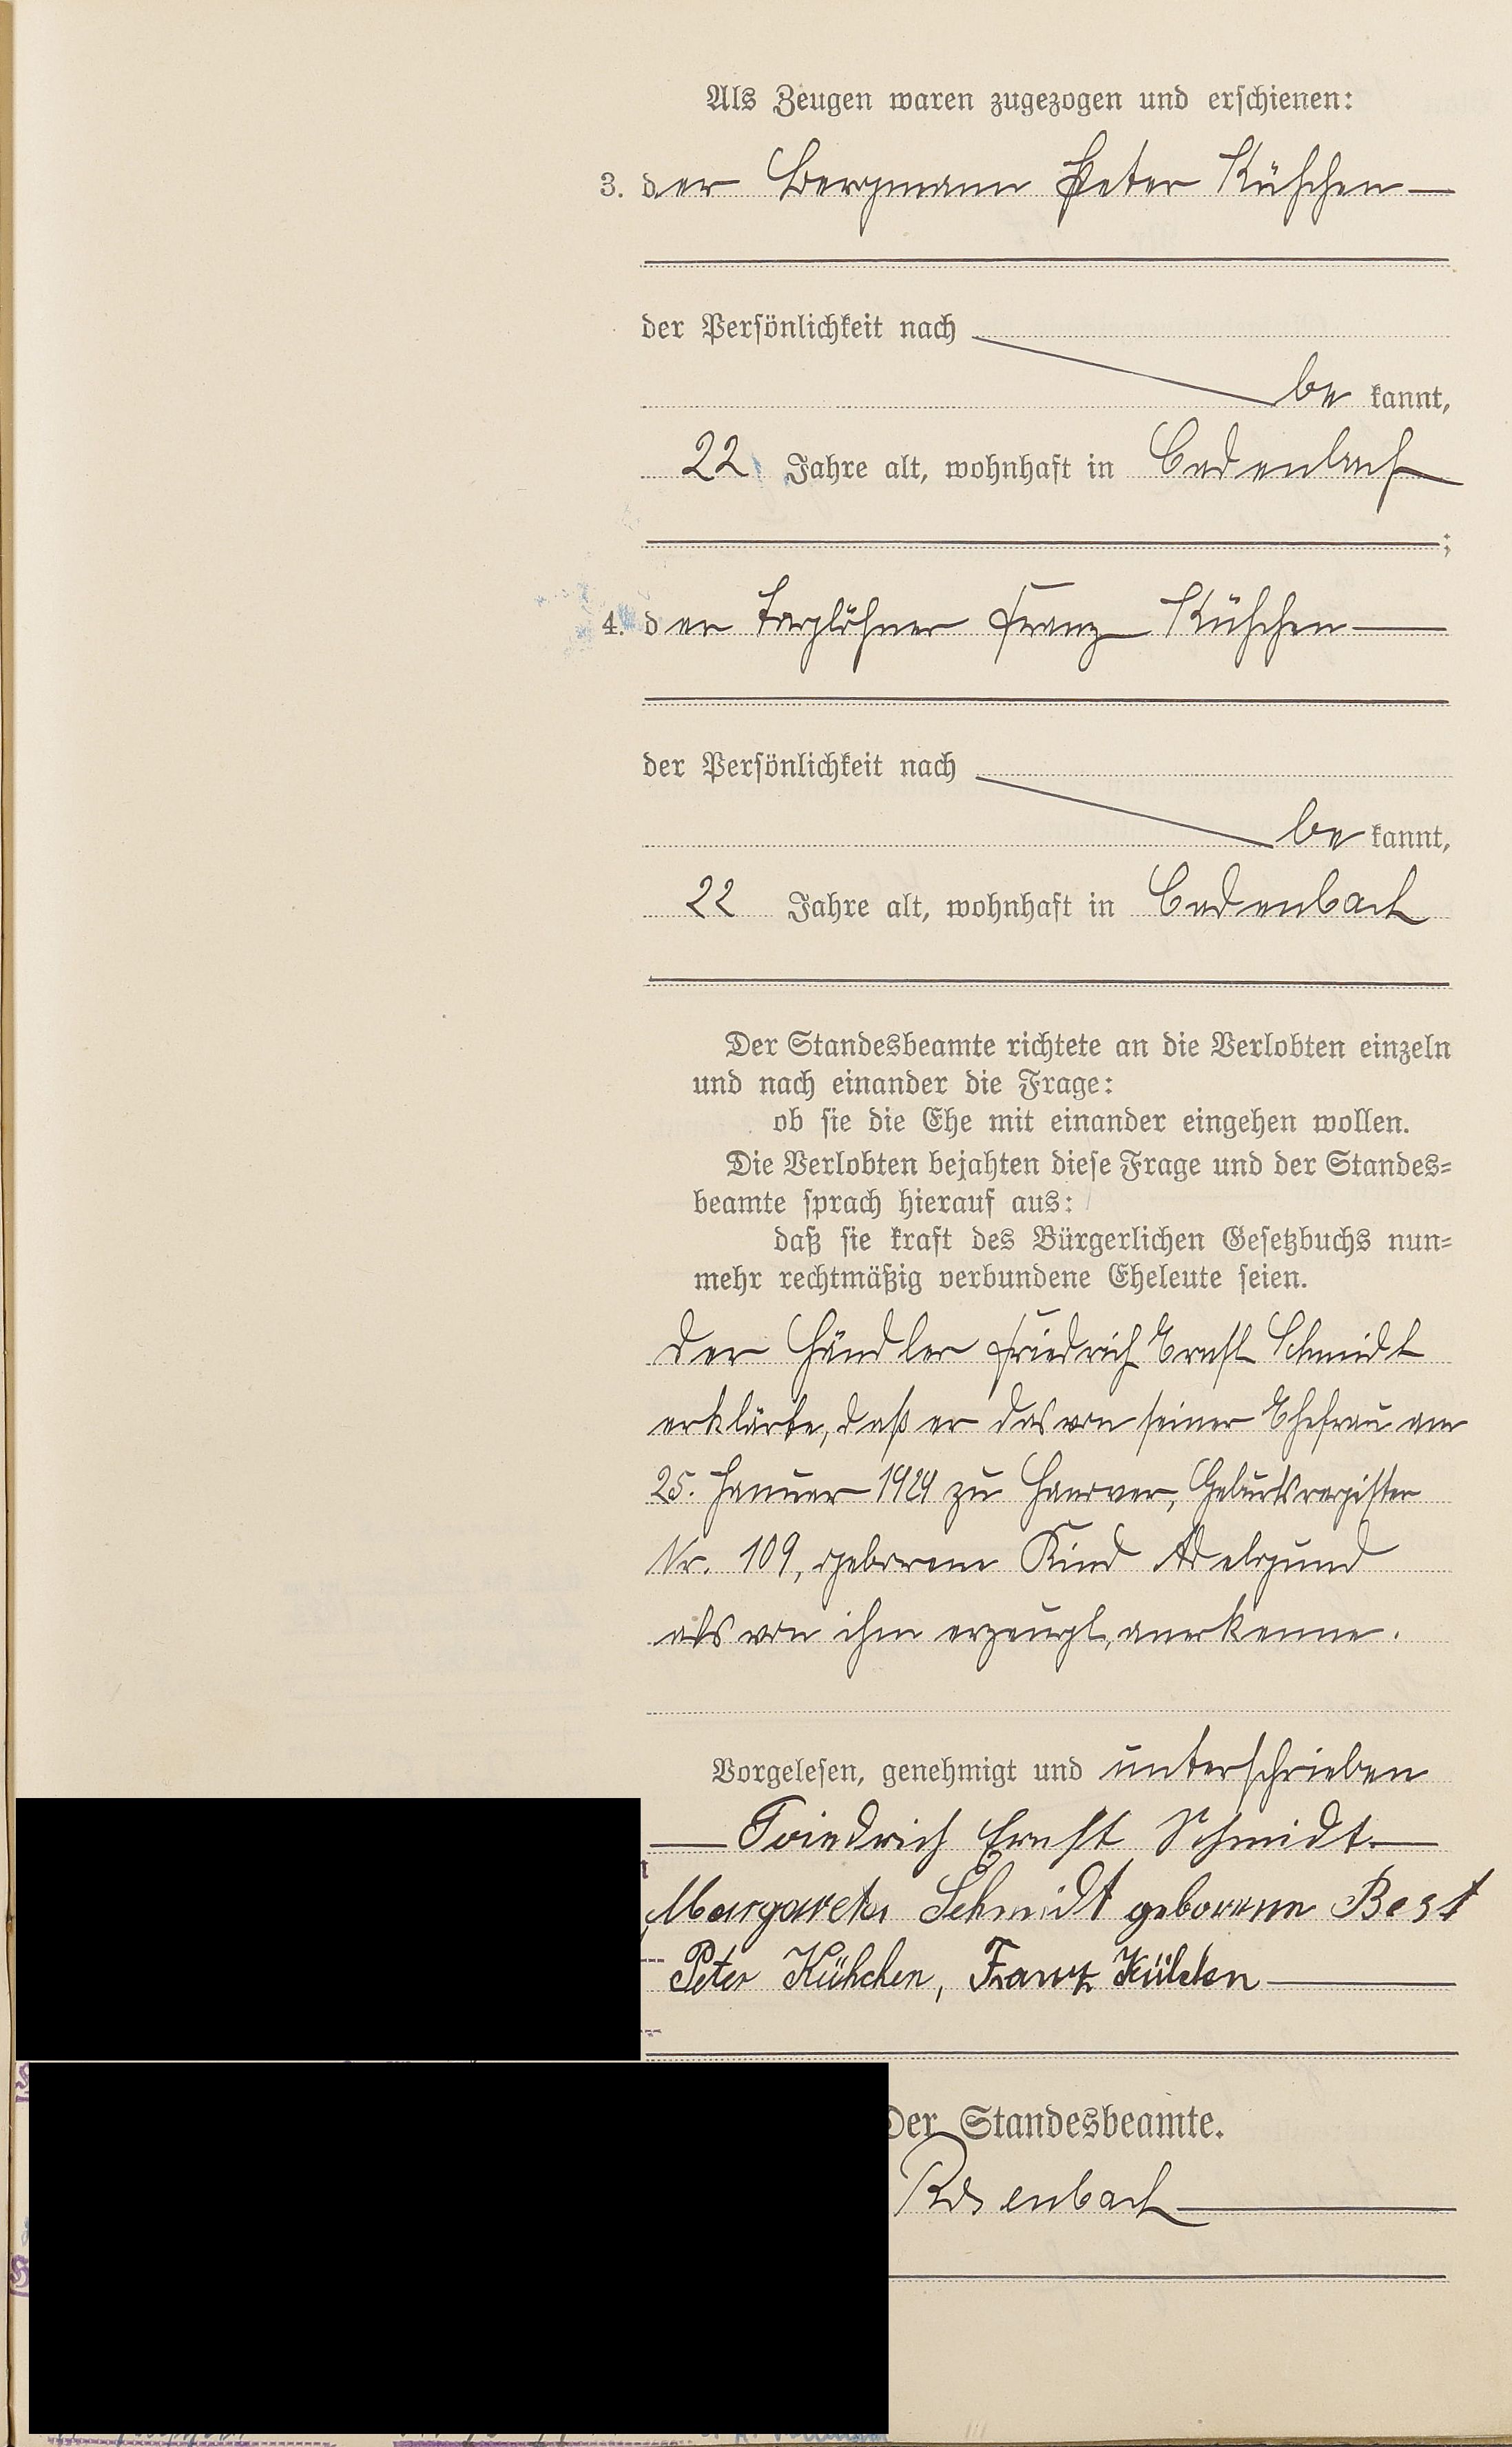 Als Zeugen waren zugezogen und erschienen:
3. der Bergmann Peter Kühchen
der Persönlichkeit nach
be kannt,
22 Jahre alt, wohnhaft in Bedenbach
;
4. der Taglöhner Franz Kühchen
der Persönlichkeit nach
be kannt,
22 Jahre alt, wohnhaft in Bedenbach
Der Standesbeamte richtete an die Verlobten einzeln
und nach einander die Frage:
ob sie die Ehe mit einander eingehen wollen.
Die Verlobten bejahten diese Frage und der Standes-
beamte sprach hierauf aus:
daß sie kraft des Bürgerlichen Gesetzbuchs nun-
mehr rechtmäßig verbundene Eheleute seien.
Der Händler Friedrich Ernst Schmidt
erklärte, daß er das von seiner Ehefrau am
25. Januar 1924 zu Hanover, Geburtsregister
Nr. 109, geborene Kind Adelgund
als von ihm erzeugt, anerkenne.
Vorgelesen, genehmigt und unterschrieben
Friedrich Ernst Schmidt.
Margareta Schmidt geborene Best
Peter Kühchen, Franz
Der Standesbeamte.
Rosenbach